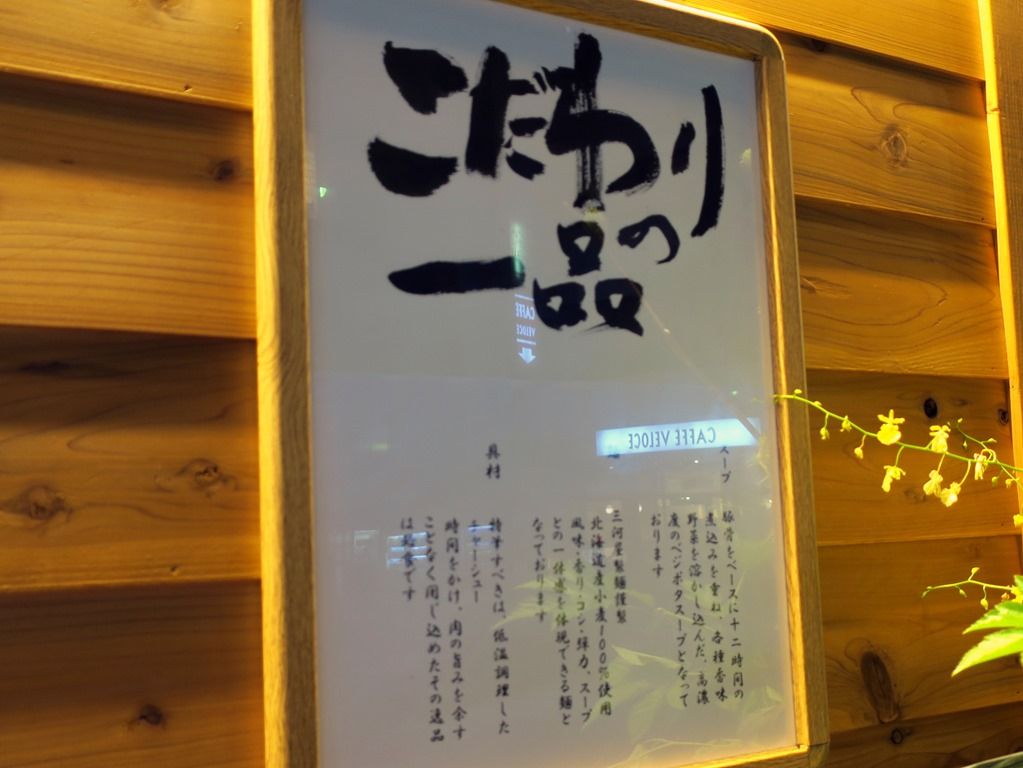 こだわりの
一品
スープ
豚骨をベースに十二時間の
煮込みを重ね、各種香味
野菜を溶かし込んだ、高濃
度のベジポタスープとなって
おります
三河屋製麺謹製
北海道産小麦100%使用
風味・香り・コシ・弾力、スープ
との一体感を体現できる麺と
なっております
具材
特筆すべきは、低温調理した
チャーシュー
時間をかけ、肉の旨みを余す
ことなく閉じ込めたその逸品
は必食です
CAFFE VELOCE
CAFFE
VELOCE